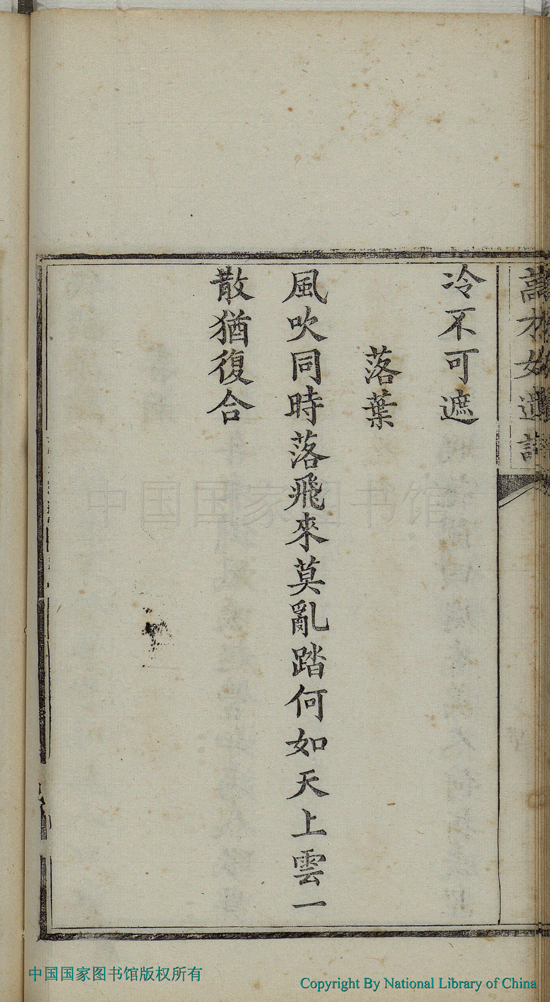 冷不可遮
落葉
風吹同時落飛來莫亂踏何如天上雲一
散猶復合
中国国家图书馆
中国国家图书馆版权所有
Copyright By National Library of China